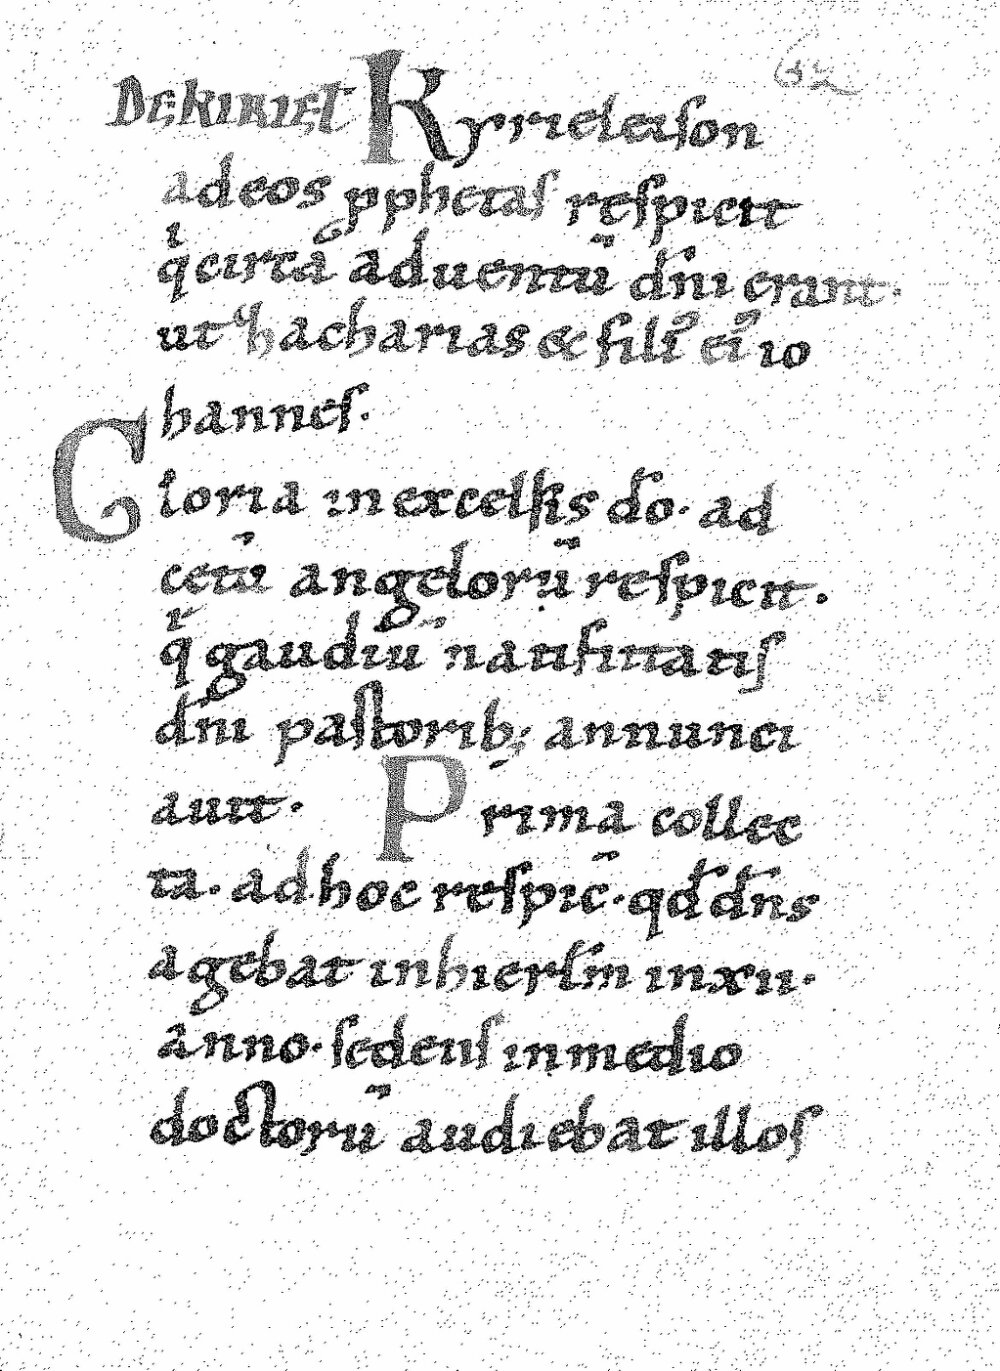 62
DEKIRIEĿ Kyrieleison
ad eos ꝓphetas respicit
qͥ circa aduentū dn̄i erant.
ut hacharias & filiꝰ eiꝰ io
hannes.
Gloria in excelsis do̅. ad
cetū angelorū respicit.
qͥ gaudiū natiuitatis
dn̄i pastorib; annunci
auit. Prima collec
ta. ad hoc respic̄. qd̄ dn̄s
agebat in hierłm in xii.
anno. sedens in medio
doctorū audiebat illos